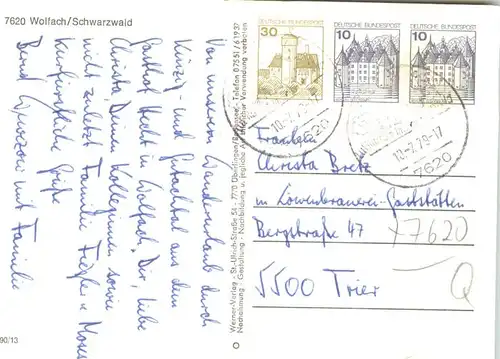 7620 Wolfach/Schwarzwald
Von unserem Wanderurlaub durch
Kinzig- und Gutachtal aus dem
Gasthof Hecht in Wolfach, Dir, liebe
Christa, Deinen Kolleginnen sowie
nicht zuletzt Familie Fiegler u Mous
Grüße
Bernd mit Familie
90/13
Werner-Verlag - St.-Ulrich-Straße 54 - 7770 - Telefon 07551/61937
Gestaltung - Nachbildung u. jegliche Verwendung verboten
30
DEUTSCHE BUNDESPOST
10
DEUTSCHE BUNDESPOST
10
DEUTSCHE BUNDESPOST
-7.79-17
7620
10-7.79-17
7620
Fräulein
Christa Bretz
in Löwenbrauerei-Gaststätten
Bergstraße 47
7620
5500 Trier